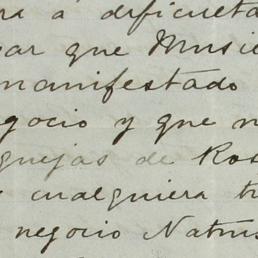 a dificulta
ar que Musi
manifestado
gocio y que n
quejas de Ros
cualquiera tr
negocio Natu